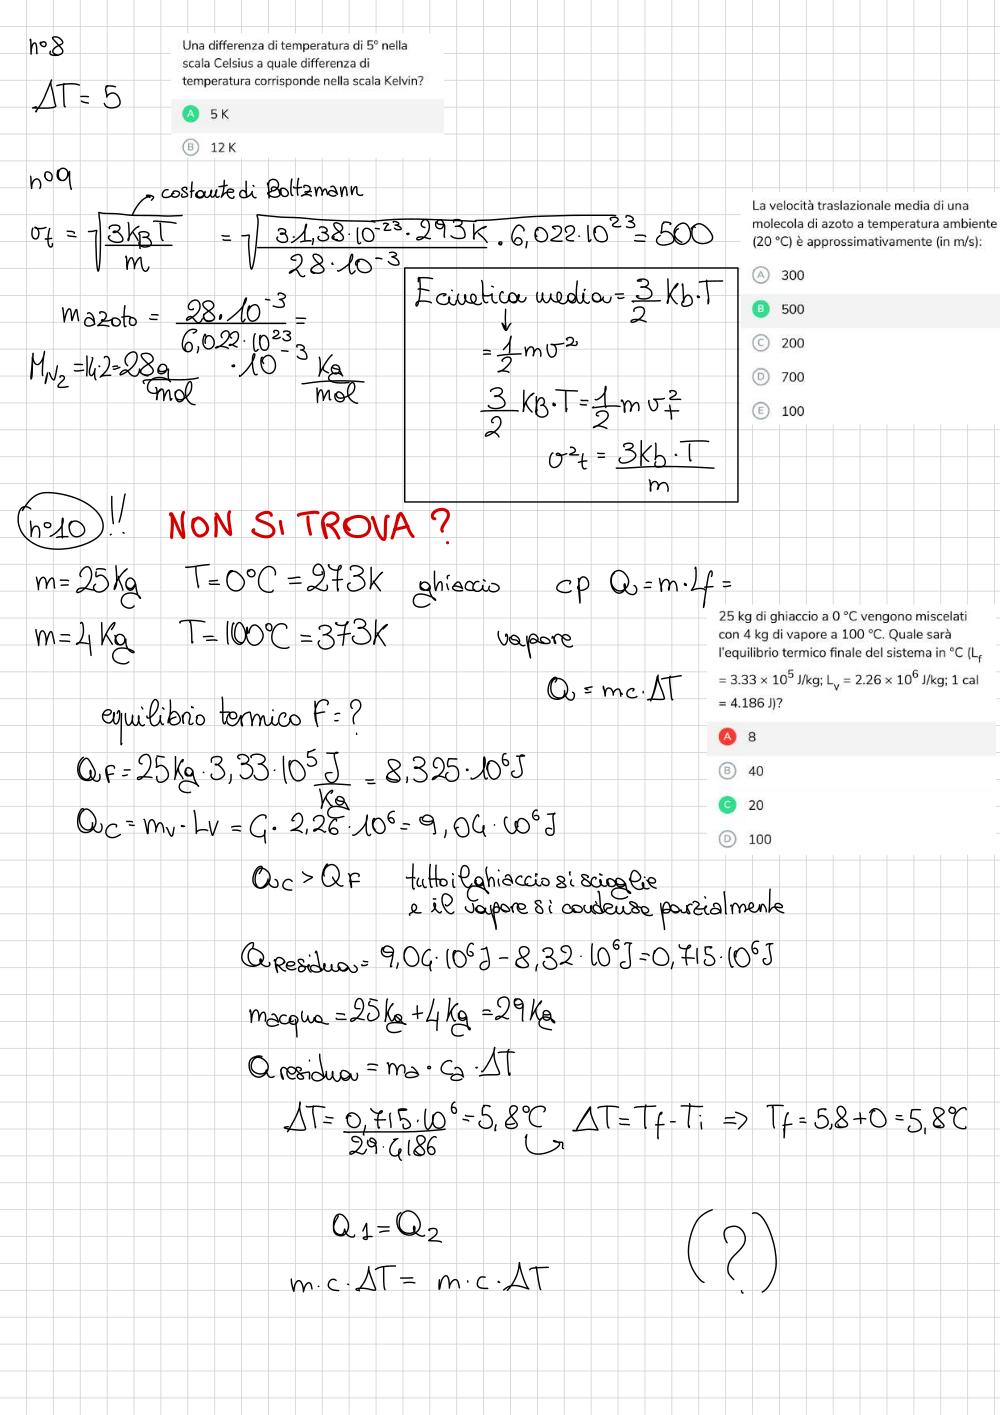 n°8
Una differenza di temperatura di 5° nella
scala Celsius a quale differenza di
temperatura corrisponde nella scala Kelvin?
ΔT = 5
A 5 K
B 12 K
n°9
costante di Boltzmann
σt = √(3KBT / m) = √(3·1,38·10⁻²³·293K / 28·10⁻³ · 6,022·10²³) = 500
La velocità traslazionale media di una
molecola di azoto a temperatura ambiente
(20 °C) è approssimativamente (in m/s):
A 300
B 500
C 200
D 700
E 100
m azoto = 28·10⁻³ / 6,022·10²³ =
M N₂ = 14·2 = 28 g/mol ·10⁻³ Kg/mol
E cinetica media = 3/2 Kb·T
= 1/2 mσ²
3/2 KB·T = 1/2 m σt²
σ²t = 3Kb·T / m
n°10 !! NON SI TROVA ?
m = 25 Kg T = 0°C = 273K ghiaccio cp Q = m·Lf =
m = 4 Kg T = 100°C = 373K vapore
Q = mc·ΔT
25 kg di ghiaccio a 0 °C vengono miscelati
con 4 kg di vapore a 100 °C. Quale sarà
l'equilibrio termico finale del sistema in °C (Lf
= 3.33 × 10⁵ J/kg; Lv = 2.26 × 10⁶ J/kg; 1 cal
= 4.186 J)?
A 8
B 40
C 20
D 100
equilibrio termico F = ?
QF = 25 Kg · 3,33·10⁵ J/Kg = 8,325·10⁶ J
QC = mv·Lv = 4· 2,26·10⁶ = 9,04·10⁶ J
QC > QF tutto il ghiaccio si scioglie
e il vapore si condensa parzialmente
Q Residua = 9,04·10⁶ J - 8,32·10⁶ J = 0,715·10⁶ J
macqua = 25 Kg + 4 Kg = 29 Kg
Q residua = ma · ca · ΔT
ΔT = 0,715·10⁶ / 29·4186 = 5,8°C ΔT = Tf - Ti => Tf = 5,8 + 0 = 5,8°C
Q1 = Q2
(?)
m·c·ΔT = m·c·ΔT